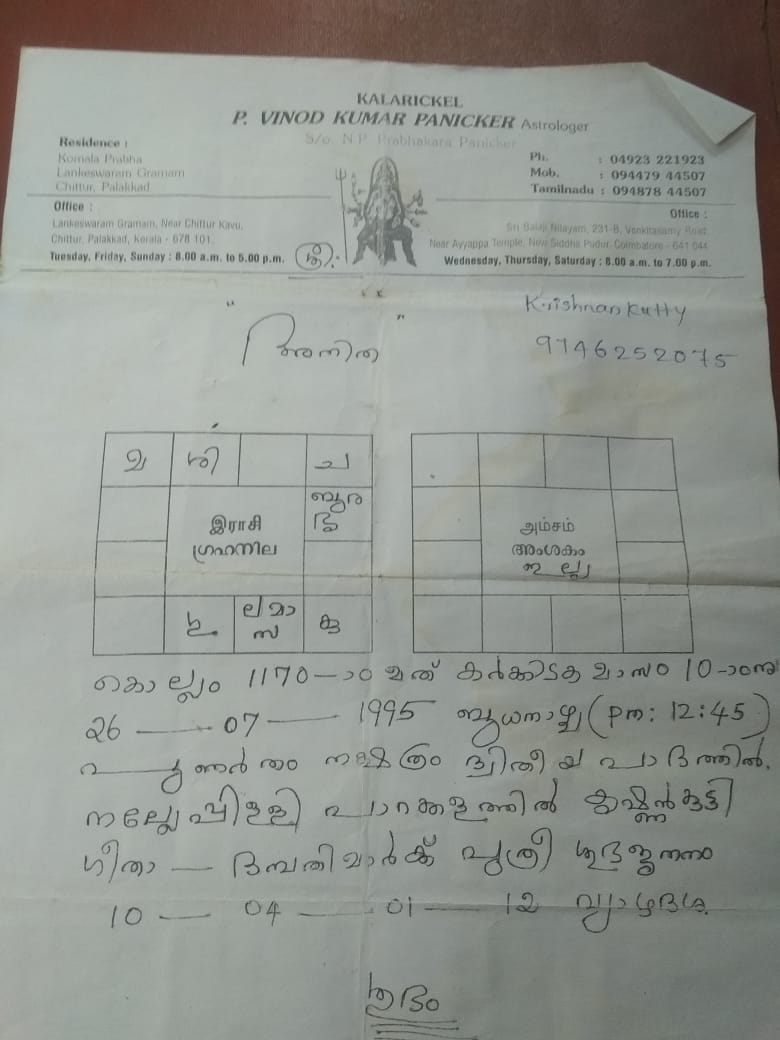 KALARICKEL
P. VINOD KUMAR PANICKER Astrologer
S/o. N.P. Prabhakara Panicker
Residence :
Komala Prabha
Lankeswaram Gramam
Chittur, Palakkad
Ph. : 04923 221923
Mob. : 094479 44507
Tamilnadu : 094878 44507
Office :
Lankeswaram Gramam, Near Chittur Kavu,
Chittur, Palakkad, Kerala - 678 101.
Tuesday, Friday, Sunday : 8.00 a.m. to 5.00 p.m.
Office :
Sri Balaji Nilayam, 231-B, Venkitasamy Road,
Near Ayyappa Temple, New Siddha Pudur, Coimbatore - 641 044.
Wednesday, Thursday, Saturday : 8.00 a.m. to 7.00 p.m.
Krishnankutty
9746252075
" അനിത "
ശി
ച
ബുര
ഇராசி
ഗ്രഹനില
ല മാ
സ
കു
அம்சம்
അംശകം
ഇല്ല
കൊല്ലം 1170-ാം മത് കർക്കിടക മാസം 10-ാംനു
26 — 07 — 1995 ബുധനാഴ്ച (pm: 12:45)
പുണർതം നക്ഷത്രം ദ്വിതീയ പാദത്തിൽ.
നല്ലേപ്പിള്ളി പാറക്കളത്തിൽ കൃഷ്ണൻകുട്ടി
ഗീതാ — ദമ്പതിമാർക്ക് പുത്രീ ശുഭജനനം
10 — 04 — 01 — 12 വ്യാഴദശ.
ശുഭം